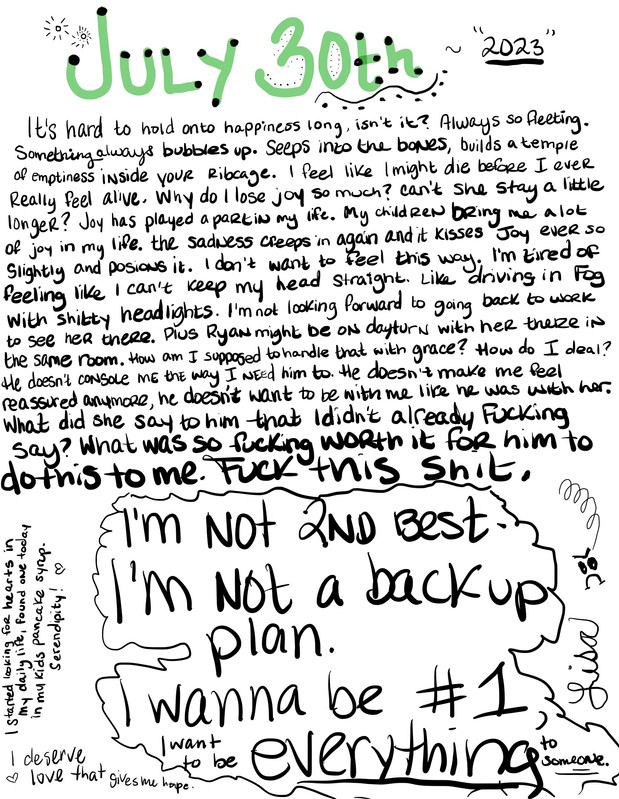 JULY 30th ~ "2023"
It's hard to hold onto happiness long, isn't it? Always so fleeting.
Something always bubbles up. Seeps into the bones, builds a temple
of emptiness inside your Ribcage. I feel like I might die before I ever
Really feel alive. Why do I lose joy so much? can't she stay a little
longer? Joy has played a part in my life. My children bring me a lot
of joy in my life. the sadness creeps in again and it kisses Joy ever so
Slightly and posions it. I don't want to feel this way. I'm tired of
feeling like I can't keep my head straight. Like driving in Fog
With shitty headlights. I'm not looking forward to going back to work
to see her there. Plus Ryan might be on dayturn with her there in
the same room. How am I supposed to handle that with grace? How do I deal?
He doesn't console me the way I need him to. He doesn't make me feel
reassured anymore, he doesn't want to be with me like he was with her.
What did she say to him that I didn't already Fucking
say? What was so fucking worth it for him to
do this to me. Fuck this shit.
I'm Not 2ND Best.
I'm Not a backup
plan.
I wanna be #1,
I want
to be everything to
someone.
I started looking for hearts in
my daily life, found one today
in my kids pancake syrup.
Serendipity! ♡
I deserve
♡ love that gives me hope.
Lisa